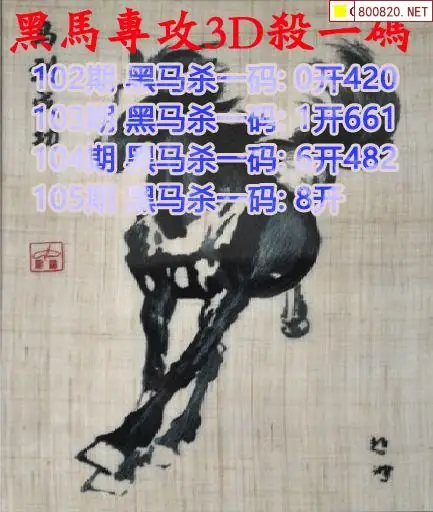 800820.NET
黑馬專攻3D殺一碼
102期 黑马杀一码: 0开420
103期 黑马杀一码: 1开661
104期 黑马杀一码: 6开482
105期 黑马杀一码: 8开